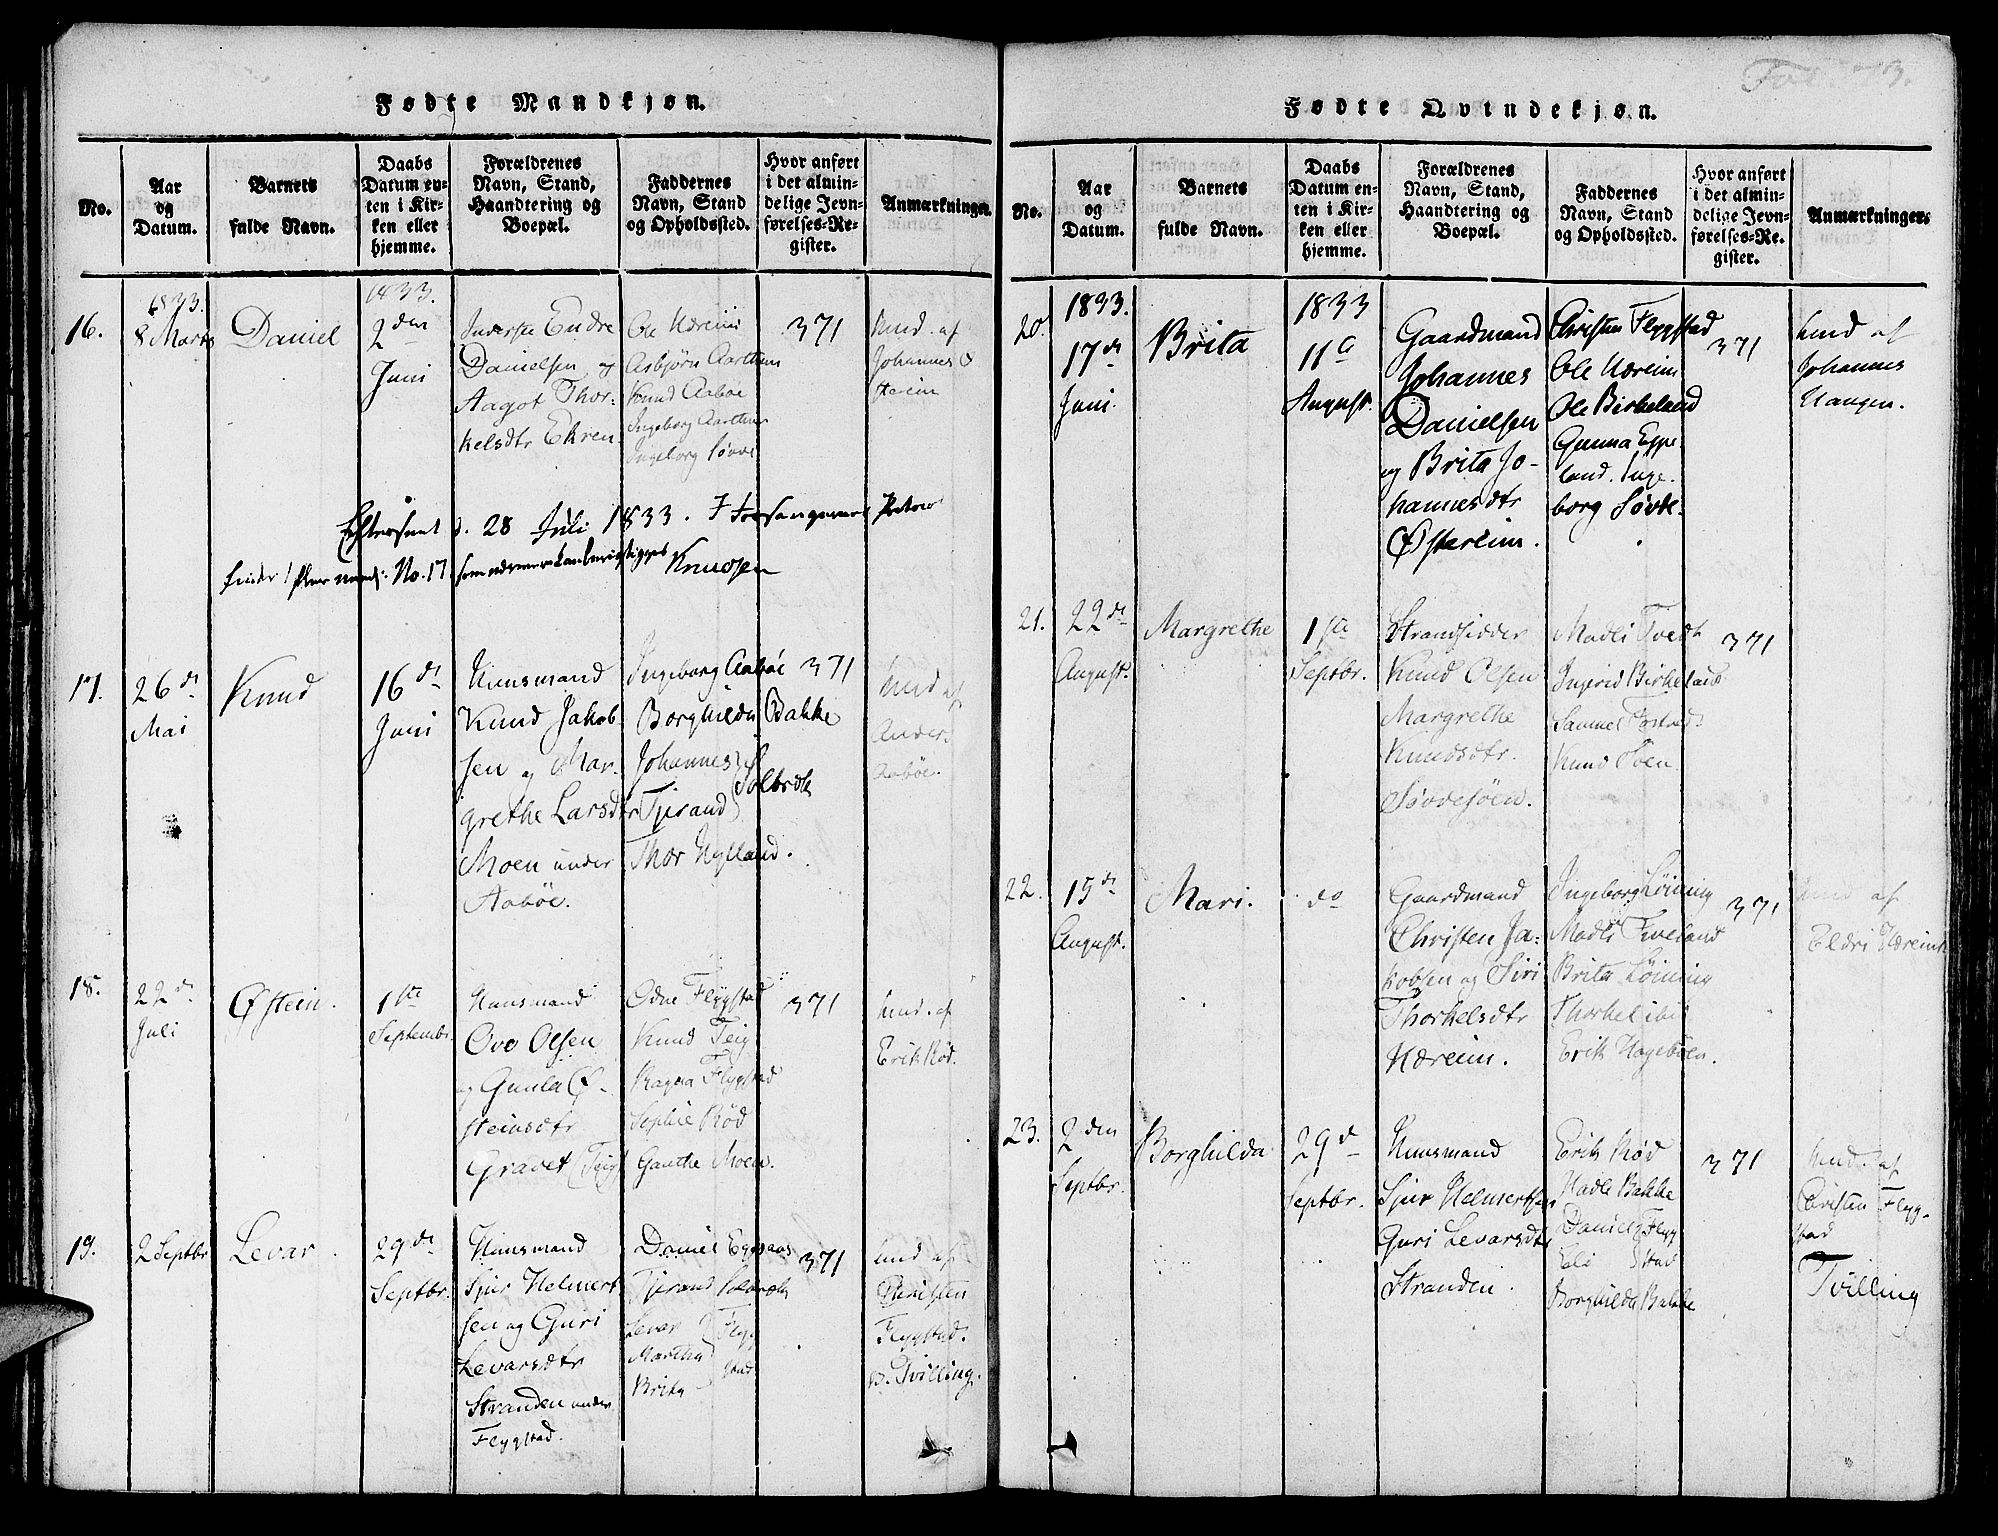 Fødte Mandkjøn.
No.
Aar
og
Datum.
Barnets
fulde Navn.
Daabs
Datum en-
ten i Kir-
ken eller
hjemme.
Forældrenes
Navn, Stand,
Haandtering og
Boepæl.
Faddernes
Navn, Stand
og Opholdssted.
Hvor anført
i det almin-
delige Jevn-
førelses-Re-
gister.
Anmærkninger.
16.
1833.
8 Marts
Daniel
1833.
2den
Juni
Inderste Endre
Danielsen og
Aagot Thor-
kelsdtr Ekren
Ole Næreim
Asbjørn Aarthun
Knud Aaboe
Ingeborg Aarthun
Ingeborg Søvde
371
hmd. af
Johannes Ø
stereim
Efterseet d. 28 Juli 1833.
No. 17
Knudsen
17.
26de
Mai
Knud
16de
Juni
Huusmand
Knud Jakob
sen og Mar-
grethe Larsdtr
Moen under
Aaboe.
Ingeborg Aaboe
Borghilda Bakke
Johannes
Tjerand
Solbrek
Thor Hylland.
371
hmd af
Ander.
Aaboe.
18.
22de
Juli
Østein.
1ste
Septembr.
Huusmand
Ove Olsen
og Gunla Ø-
steinsdtr
Gravet (Teig)
Odne Flygstad
Knud Teig
Ragna Flygstad
Sophie Rød
Gunthe Moen.
371
hmd. af
Erik Rød.
19.
2 Septbr
Levar
29de
Septbr.
Huusmand
Sjur Helmert
sen og Guri
Levarsdtr
Stranden under
Flygstad.
Daniel
Tjerand Solbrek
Levar
Martha
Brita
Flyg-
stad
371
hmd af
Christen
Flygstad.
B. Tvilling.
Fødte Qvindekjøn.
No.
Aar
og
Datum.
Barnets
fulde Navn.
Daabs
Datum en-
ten i Kir-
ken eller
hjemme.
Forældrenes
Navn, Stand,
Haandtering og
Boepæl.
Faddernes
Navn, Stand
og Opholdssted.
Hvor anført
i det almin-
delige Jevn-
førelses-Re-
gister.
Anmærkninger.
20.
1833.
17de
Juni.
Brita
1833
11te
August.
Gaardmand
Johannes
Danielsen
og Brita Jo-
hannesdtr
Østereim.
Christen Flygstad
Ole Næreim
Ole Birkeland
Gunna Eppe
land. Inge-
borg Søvde.
371
hmd af
Johannes
Haugen.
21.
22de
August.
Margrethe
1ste
Septbr.
Strandsidder
Knud Olsen
Margrethe
Knudsdtr.
Søvdesøen.
Madli Tvedt
Ingerid Birkeland
Samuel
Knud Søen
371
22.
15de
August.
Mari.
do
Gaardmand
Christen Ja-
kobsen og Siri
Thorkelsdtr
Næreim.
Ingeborg Løining
Madli Tveland
Brita Løining
Thorkel ibid
Erik Hagebøen.
371
hmd af
Eldri Næreim
23.
2den
Septbr.
Borghilda
29de
Septbr.
Huusmand
Sjur Helmertsen
Guri Levarsdtr
Stranden.
Erik Rød
Madle Bakke
Daniel
Eli
Flyg
stad
Borghilda Bakke
371
hmd. af
Christen Flyg-
stad
Tvilling